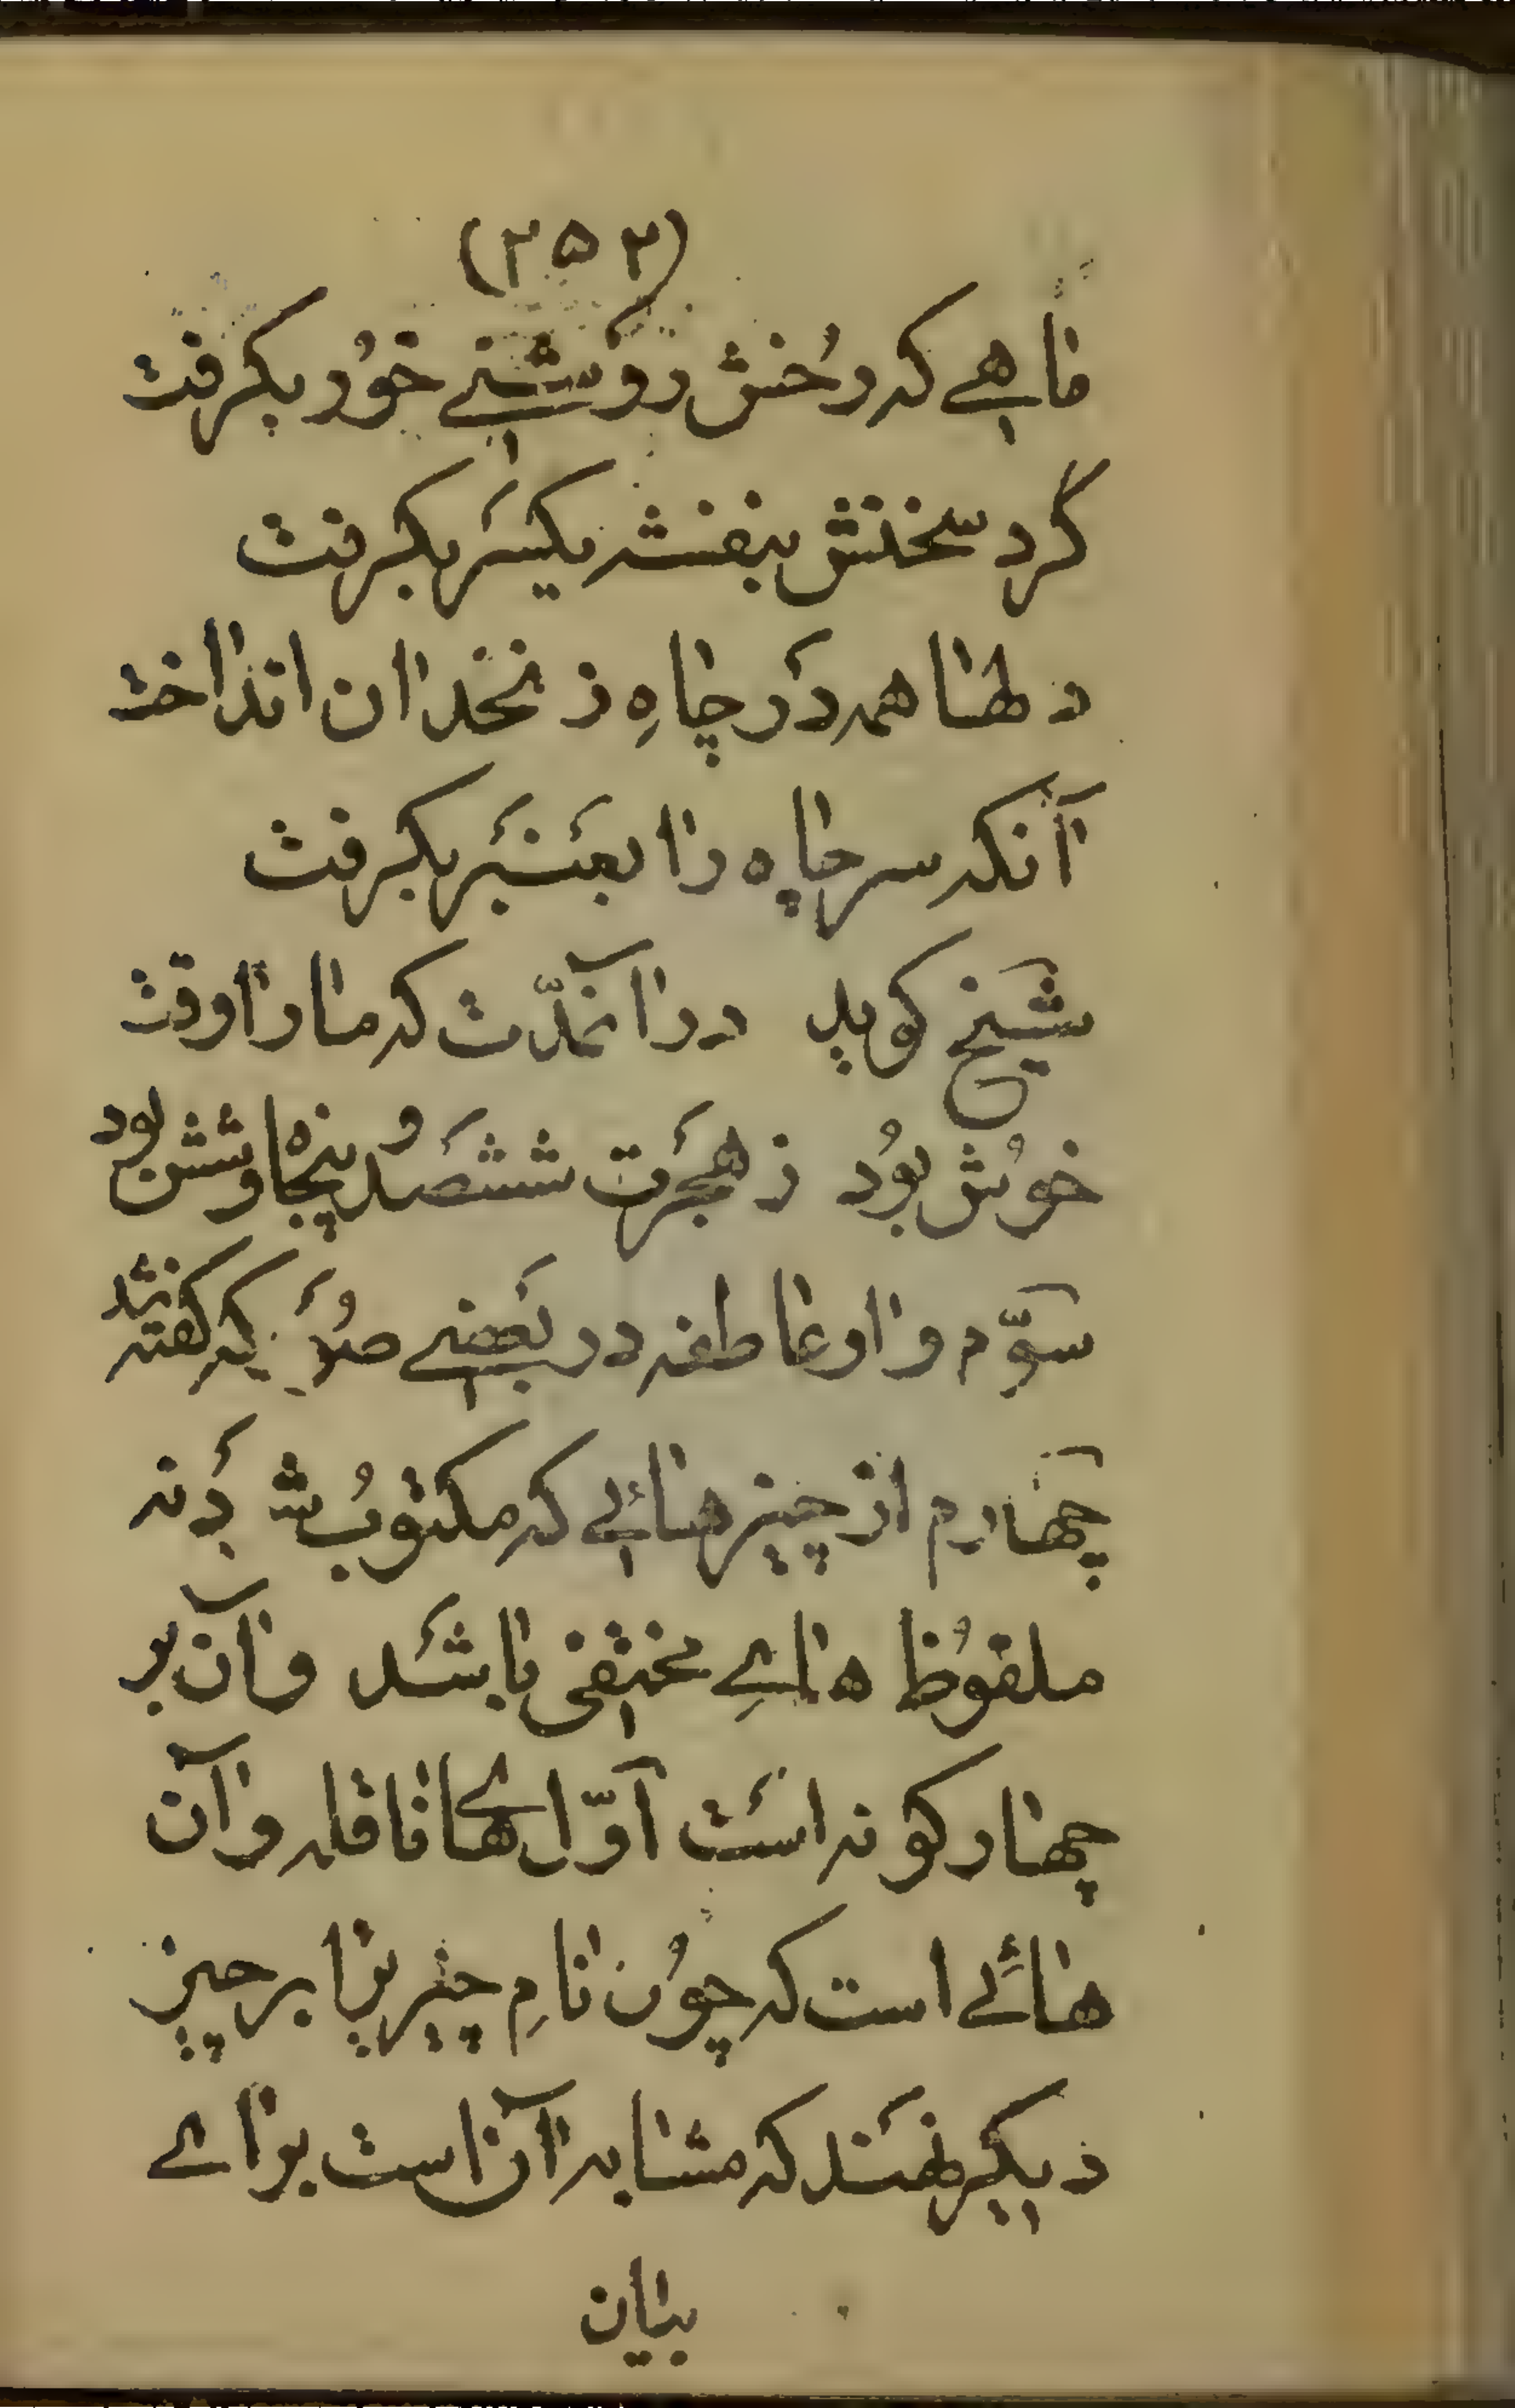 (۲۵۲)
ماهے که رُخش روَشنے خوُر بگرفت
گَرد سخنش بنفشه یکسَر بگرفت
دلها همه دَر چاهِ زنخدان انداخت
آنکه سر چاه را بعَنبَر بگرفت
شیخ گوید در آنمدّت که ما را وقت
خوُش بوُد ز هجَرت ششصَد و پنجاه و شش بود
سوّم واو عاطفه در بَعضے صُوَر که گفته شد
چهارم از چیزهائے که مکتوُب شَد نه
ملفوُظ هاےِ مختفی باشَد و آن بر
چهار گونه اسَت اوّل هاے ناقله و آن
هائے است که چوُن نامِ چیز را بر چیز
دیگر نهَند که مشابه آن است براے
بیان